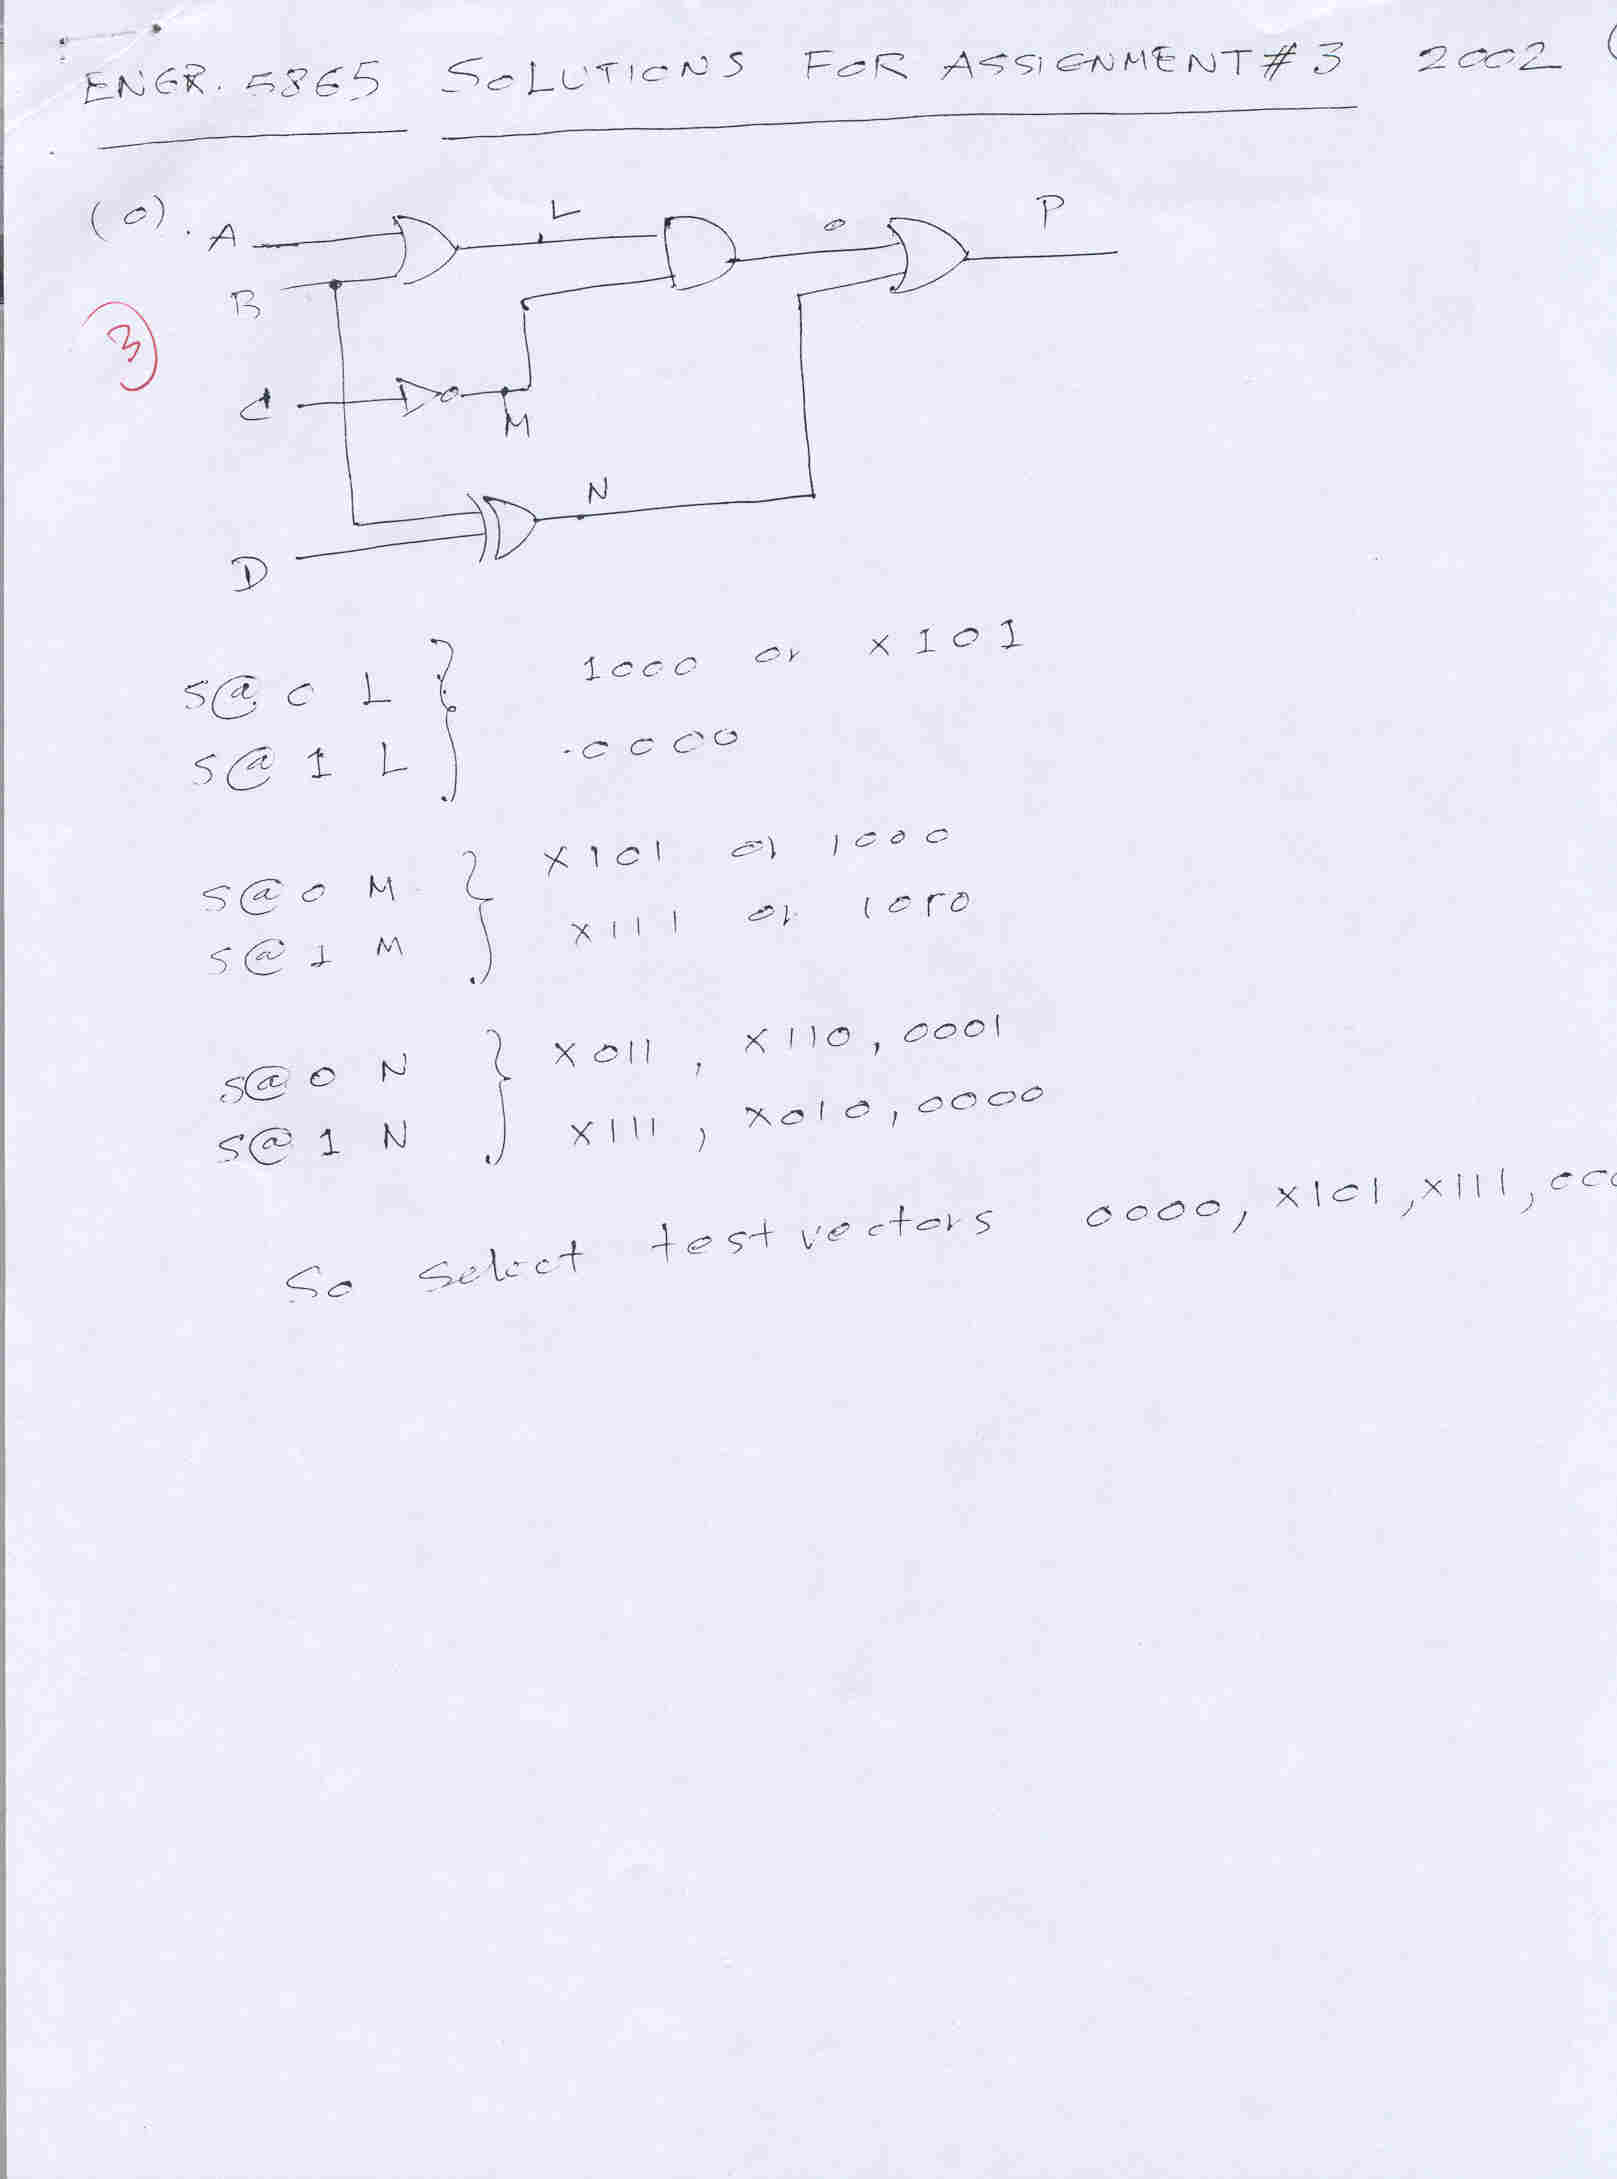 ENGR. 5865 SOLUTIONS FOR ASSIGNMENT # 3 2002 (
(0).
A
L
O
P
B
3
C
M
N
D
S@ 0 L } 1000 or X101
S@ 1 L 0000
S@ 0 M } X101 or 1000
S@ 1 M X111 or 1010
S@ 0 N } X011, X110, 0001
S@ 1 N X111, X010, 0000
So select test vectors 0000, X101, X111,